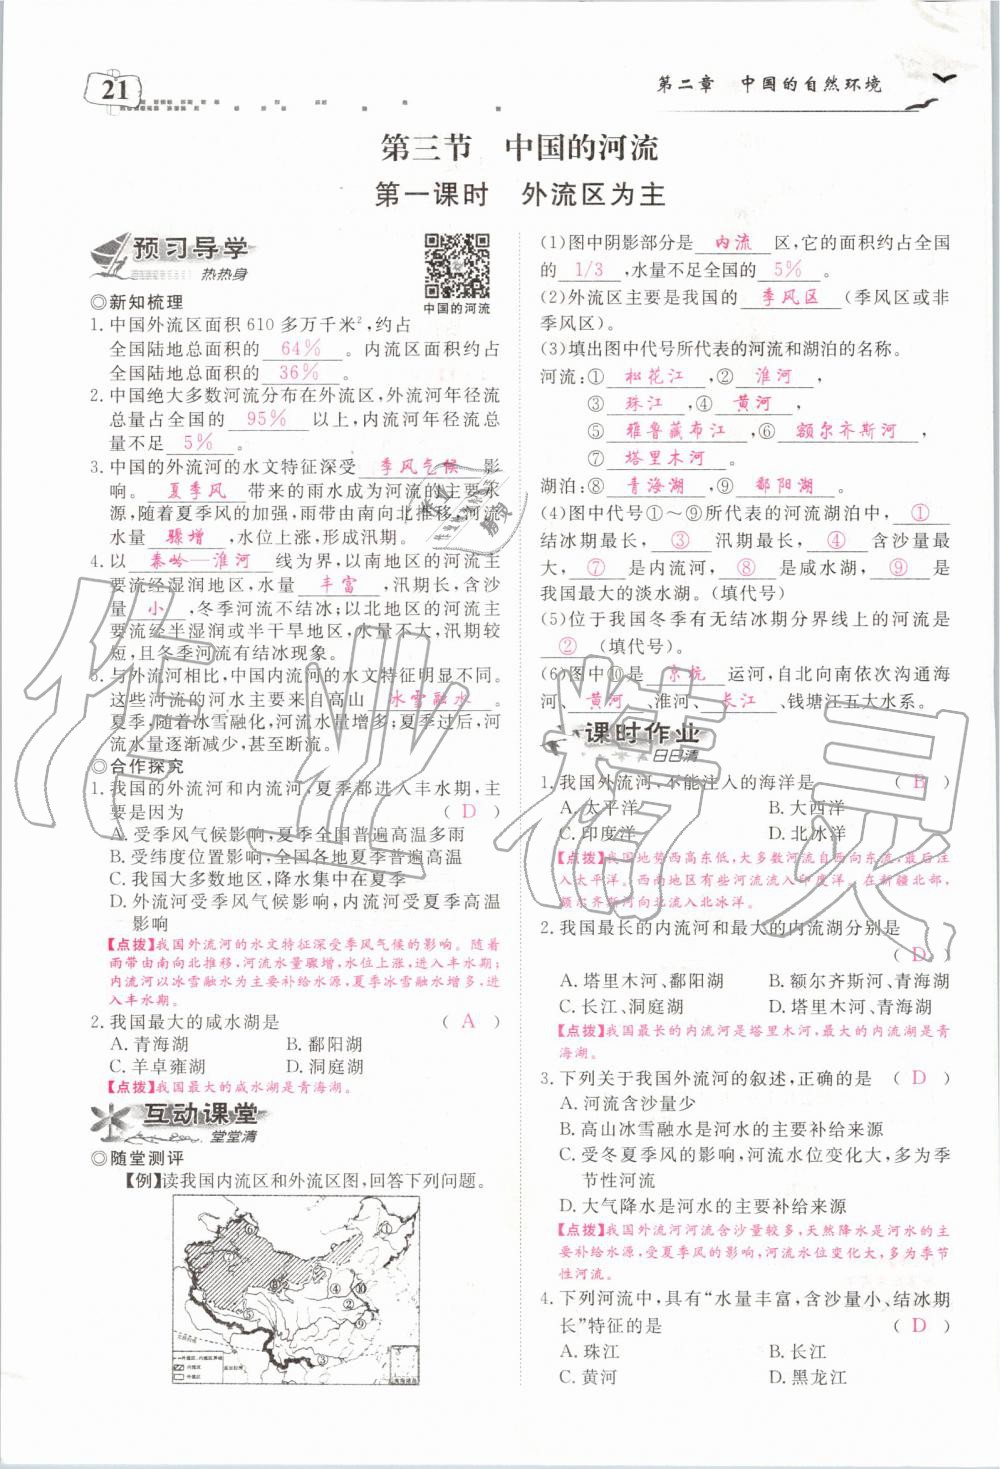 21
第二章　中国的自然环境
第三节　中国的河流
第一课时　外流区为主
预习导学
热热身
中国的河流
◎新知梳理
1. 中国外流区面积 610 多万千米²，约占
全国陆地总面积的 64% 。内流区面积约占
全国陆地总面积的 36% 。
2. 中国绝大多数河流分布在外流区，外流河年径流
总量占全国的 95% 以上，内流河年径流总
量不足 5% 。
3. 中国的外流河的水文特征深受 季风气候 影
响。 夏季风 带来的雨水成为河流的主要水
源，随着夏季风的加强，雨带由南向北推移，河流
水量 骤增 ，水位上涨，形成汛期。
4. 以 秦岭—淮河 线为界，以南地区的河流主
要流经湿润地区，水量 丰富 ，汛期长，含沙
量 小 ，冬季河流不结冰；以北地区的河流主
要流经半湿润或半干旱地区，水量不大，汛期较
短，且冬季河流有结冰现象。
5. 与外流河相比，中国内流河的水文特征明显不同。
这些河流的河水主要来自高山 冰雪融水 。
夏季，随着冰雪融化，河流水量增多；夏季过后，河
流水量逐渐减少，甚至断流。
◎合作探究
1. 我国的外流河和内流河，夏季都进入丰水期，主
要是因为 （ D ）
A. 受季风气候影响，夏季全国普遍高温多雨
B. 受纬度位置影响，全国夏季普遍高温
C. 我国大多数地区，降水集中在夏季
D. 外流河受季风气候影响，内流河受夏季高温
影响
【点拨】我国外流河的水文特征深受季风气候的影响。随着
雨带由南向北推移，河流水量骤增，水位上涨，进入丰水期；
内流河以冰雪融水为主要补给水源，夏季冰雪融水增多，进
入丰水期。
2. 我国最大的咸水湖是 （ A ）
A. 青海湖 B. 鄱阳湖
C. 羊卓雍湖 D. 洞庭湖
【点拨】我国最大的咸水湖是青海湖。
互动课堂
堂堂清
◎随堂测评
【例】读我国内流区和外流区图，回答下列问题。
(1)图中阴影部分是 内流 区，它的面积约占全国
的 1/3 ，水量不足全国的 5% 。
(2)外流区主要是我国的 季风区 （季风区或非
季风区）。
(3)填出图中代号所代表的河流和湖泊的名称。
河流：① 松花江 ，② 淮河 ，
③ 珠江 ，④ 黄河 ，
⑤ 雅鲁藏布江 ，⑥ 额尔齐斯河 ，
⑦ 塔里木河 。
湖泊：⑧ 青海湖 ，⑨ 鄱阳湖 。
(4)图中代号①～⑨所代表的河流湖泊中， ①
结冰期最长， ③ 汛期最长， ④ 含沙量最
大， ⑦ 是内流河， ⑧ 是咸水湖， ⑨ 是
我国最大的淡水湖。（填代号）
(5)位于我国冬季有无结冰期分界线上的河流是
② （填代号）。
(6)图中⑩是 京杭 运河，自北向南依次沟通海
河、 黄河 、淮河、 长江 、钱塘江五大水系。
课时作业
日日清
1. 我国外流河，不能注入的海洋是 （ B ）
A. 太平洋 B. 大西洋
C. 印度洋 D. 北冰洋
【点拨】我国地势西高东低，大多数河流自西向东流，最后注
入太平洋。西南地区有些河流流入印度洋。在新疆北部，
额尔齐斯河向北流入北冰洋。
2. 我国最长的内流河和最大的内流湖分别是
（ D ）
A. 塔里木河、鄱阳湖 B. 额尔齐斯河、青海湖
C. 长江、洞庭湖 D. 塔里木河、青海湖
【点拨】我国最长的内流河是塔里木河，最大的内流湖是青
海湖。
3. 下列关于我国外流河的叙述，正确的是 （ D ）
A. 河流含沙量少
B. 高山冰雪融水是河水的主要补给来源
C. 受冬夏季风的影响，河流水位变化大，多为季
节性河流
D. 大气降水是河水的主要补给来源
【点拨】我国外流河河流含沙量较多，天然降水是河水的主
要补给水源，受夏季风的影响，河流水位变化大，多为季节
性河流。
4. 下列河流中，具有“水量丰富，含沙量小、结冰期
长”特征的是 （ D ）
A. 珠江 B. 长江
C. 黄河 D. 黑龙江